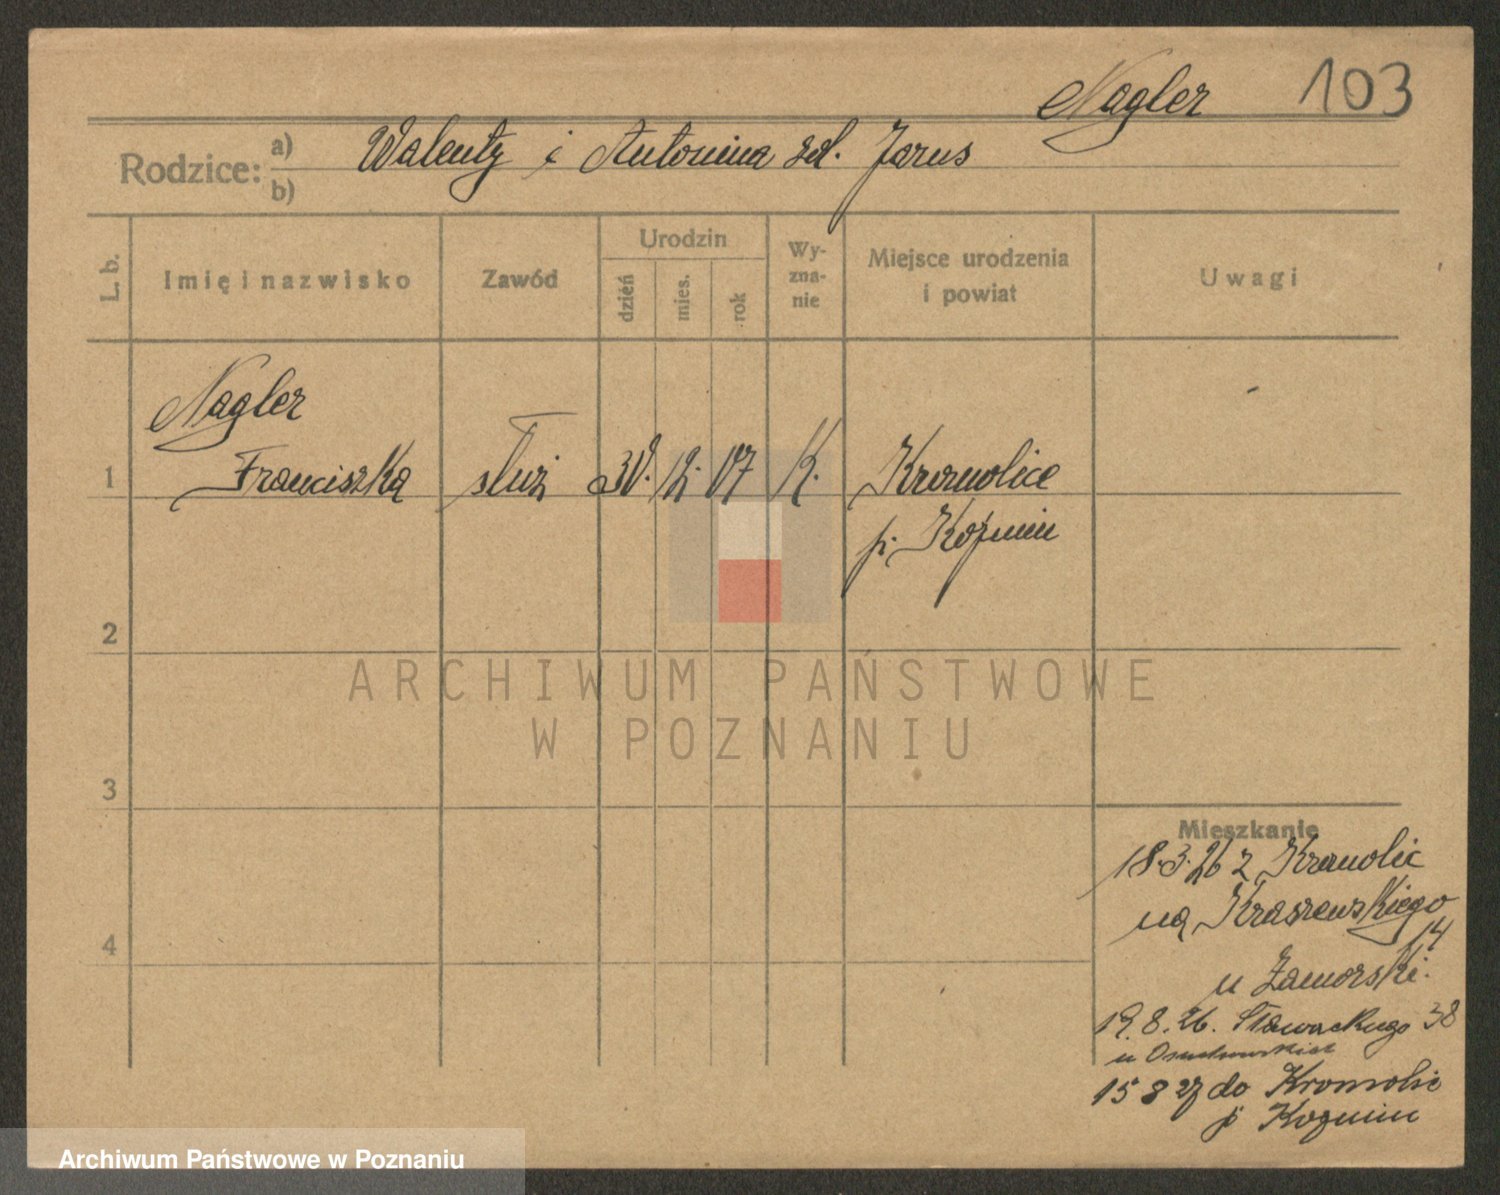 Nagler 103
Rodzice: a) Walenty i Antonina zd. Jarus
b)
L. b.
Imię i nazwisko
Zawód
Urodzin
dzień
mies.
rok
Wy-
zna-
nie
Miejsce urodzenia
i powiat
Uwagi
Nagler
1 Franciszka służ 30. 12. 07 K. Kromolice
p. Koźmin
2
ARCHIWUM PAŃSTWOWE
W POZNANIU
3
Mieszkanie
18.3.26 z Kromolic
na Kraszewskiego
14
4
u Zamorski.
19.8.26. Słowackiego 38
u
15 8 27 do Kromolic
p Kozmin
Archiwum Państwowe w Poznaniu